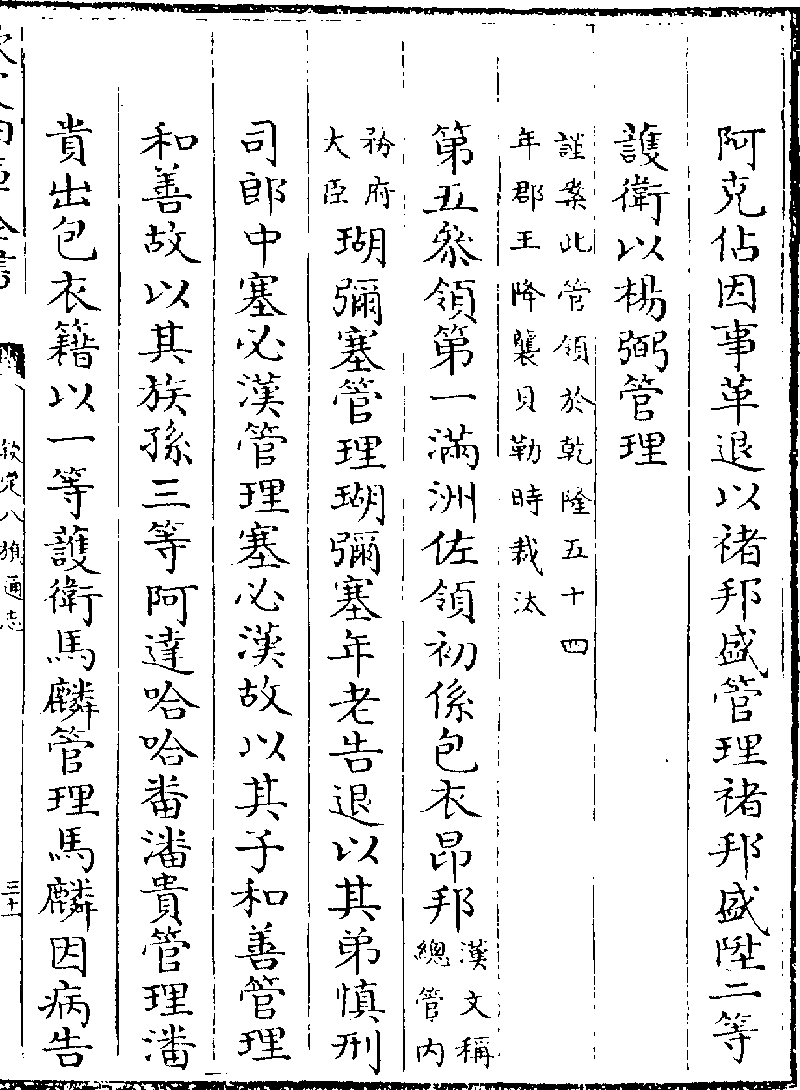 阿克佔因事革退以褚邦盛管理褚邦盛陞二等
護衛以楊弼管理
謹案此管領於乾隆五十四
年郡王降襲貝勒時裁汰
第五叅領第一滿洲佐領初係包衣昂邦漢文稱
總管内
務府
大臣瑚彌塞管理瑚彌塞年老告退以其弟慎刑
司郎中塞必漢管理塞必漢故以其子和善管理
和善故以其族孫三等阿達哈哈番潘貴管理潘
貴出包衣籍以一等護衛馬麟管理馬麟因病告
欽定八旗通志
三十一